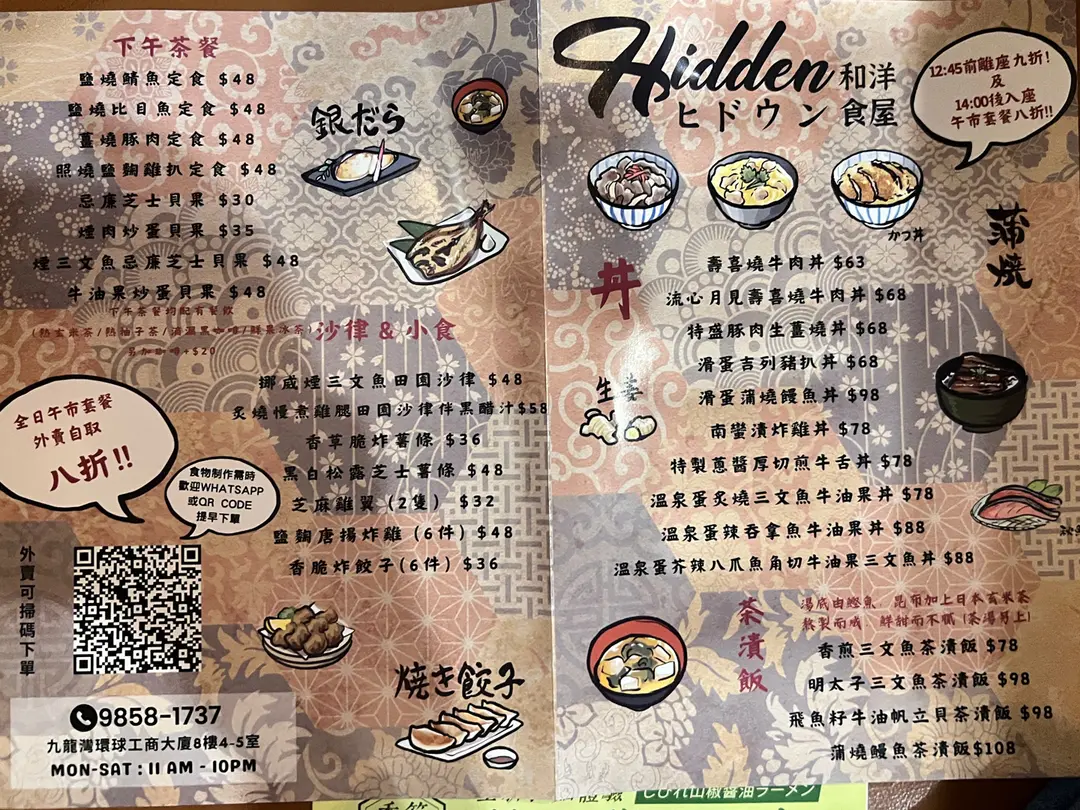 下午茶餐
鹽燒鯖魚定食 $48
鹽燒比目魚定食 $48
薑燒豚肉定食 $48
照燒鹽麴雞扒定食 $48
忌廉芝士貝果 $30
煙肉炒蛋貝果 $35
煙三文魚忌廉芝士貝果 $48
牛油果炒蛋貝果 $48
下午茶餐均配有餐飲
(熱玄米茶/熱柚子茶/滴漏黑咖啡/鮮果冰茶)
另加咖啡+$20
銀だら
沙律 & 小食
挪威煙三文魚田園沙律 $48
炙燒慢煮雞腿田園沙律伴黑醋汁 $58
香草脆炸薯條 $36
黑白松露芝士薯條 $48
芝麻雞翼 (2隻) $32
鹽麴唐揚炸雞 (6件) $48
香脆炸餃子(6件) $36
全日午市套餐
外賣自取
八折!!
食物制作需時
歡迎WHATSAPP
或QR CODE
提早下單
外賣可掃碼下單
焼き餃子
9858-1737
九龍灣環球工商大廈8樓4-5室
MON-SAT : 11 AM - 10PM
Hidden 和洋
ヒドウン 食屋
12:45前離座九折!
及
14:00後入座
午市套餐八折!!
かつ丼
蒲焼
丼
壽喜燒牛肉丼 $63
流心月見壽喜燒牛肉丼 $68
特盛豚肉生薑燒丼 $68
滑蛋吉列豬扒丼 $68
滑蛋蒲燒鰻魚丼 $98
南蠻漬炸雞丼 $78
特製蔥醬厚切煎牛舌丼 $78
溫泉蛋炙燒三文魚牛油果丼 $78
溫泉蛋辣吞拿魚牛油果丼 $88
溫泉蛋芥辣八爪魚角切牛油果三文魚丼 $88
生姜
茶漬飯
湯底由鰹魚 昆布加上日本玄米茶
熬製而成 鮮甜而不膩 (茶湯另上)
香煎三文魚茶漬飯 $78
明太子三文魚茶漬飯 $98
飛魚籽牛油帆立貝茶漬飯 $98
蒲燒鰻魚茶漬飯$108
しびれ山椒醤油ラーメン